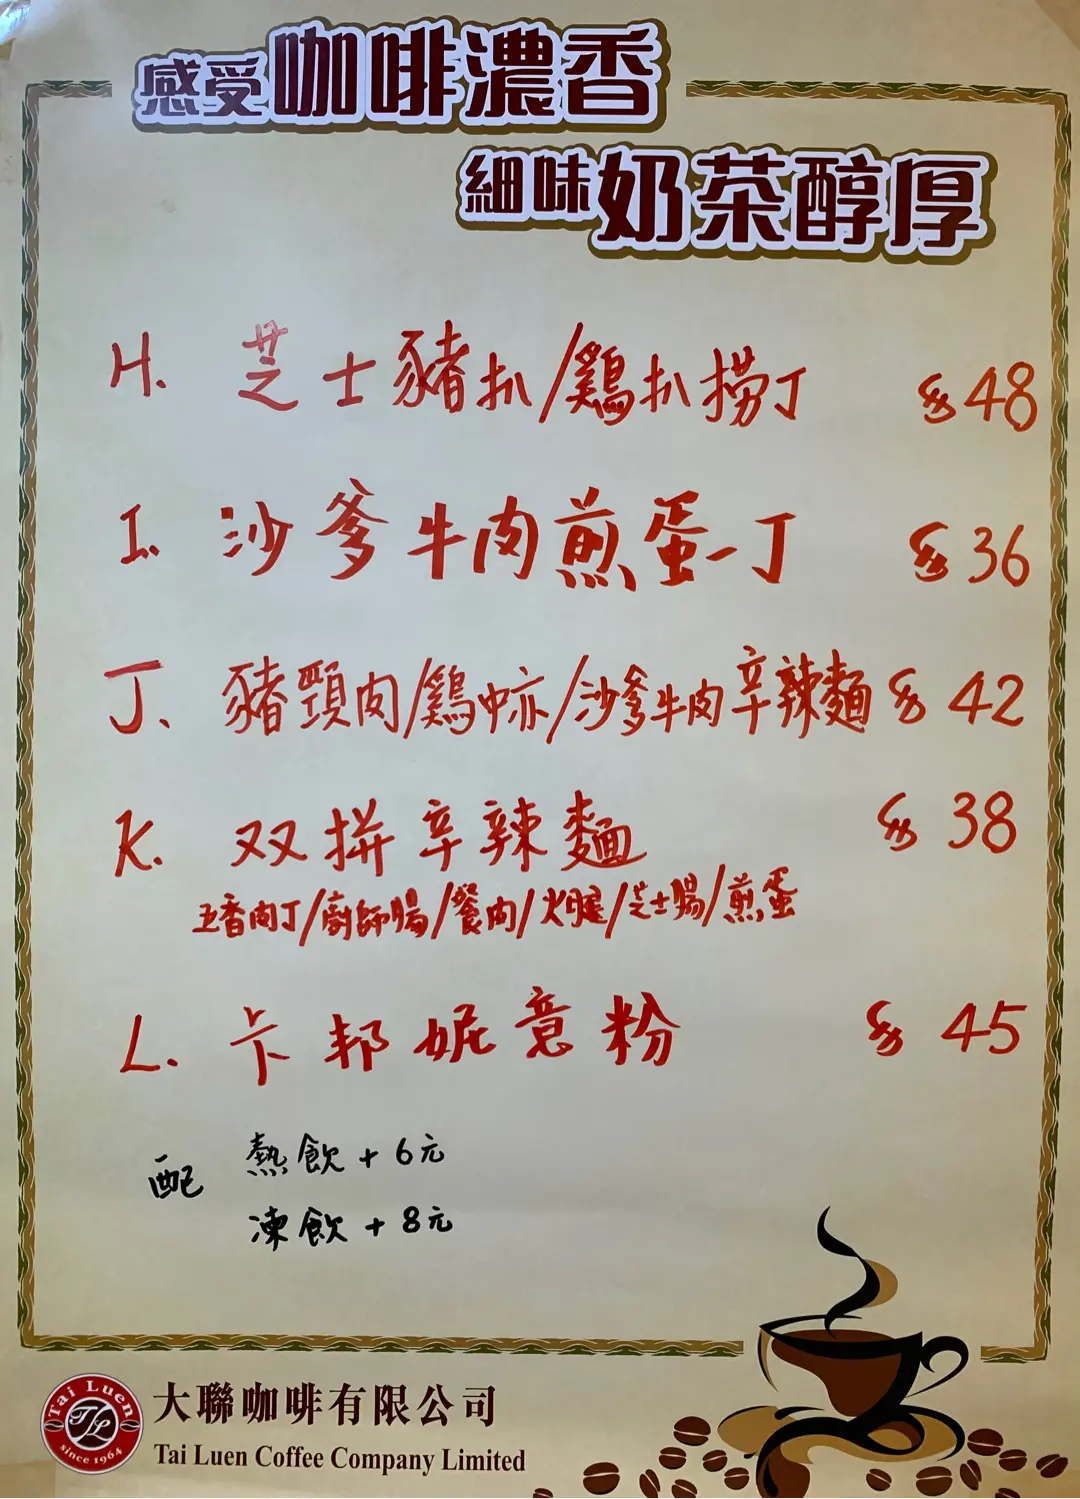 感受咖啡濃香
細味奶茶醇厚
H. 芝士豬扒/鷄扒捞丁 $48
I. 沙爹牛肉煎蛋丁 $36
J. 豬頸肉/鷄中亦/沙爹牛肉辛辣麵 $42
K. 双拼辛辣麵 $38
五香肉丁/廚師腸/餐肉/火腿/芝士腸/煎蛋
L. 卡邦妮意粉 $45
配 熱飲+6元
凍飲+8元
Tai Luen
TL
since 1964
大聯咖啡有限公司
Tai Luen Coffee Company Limited